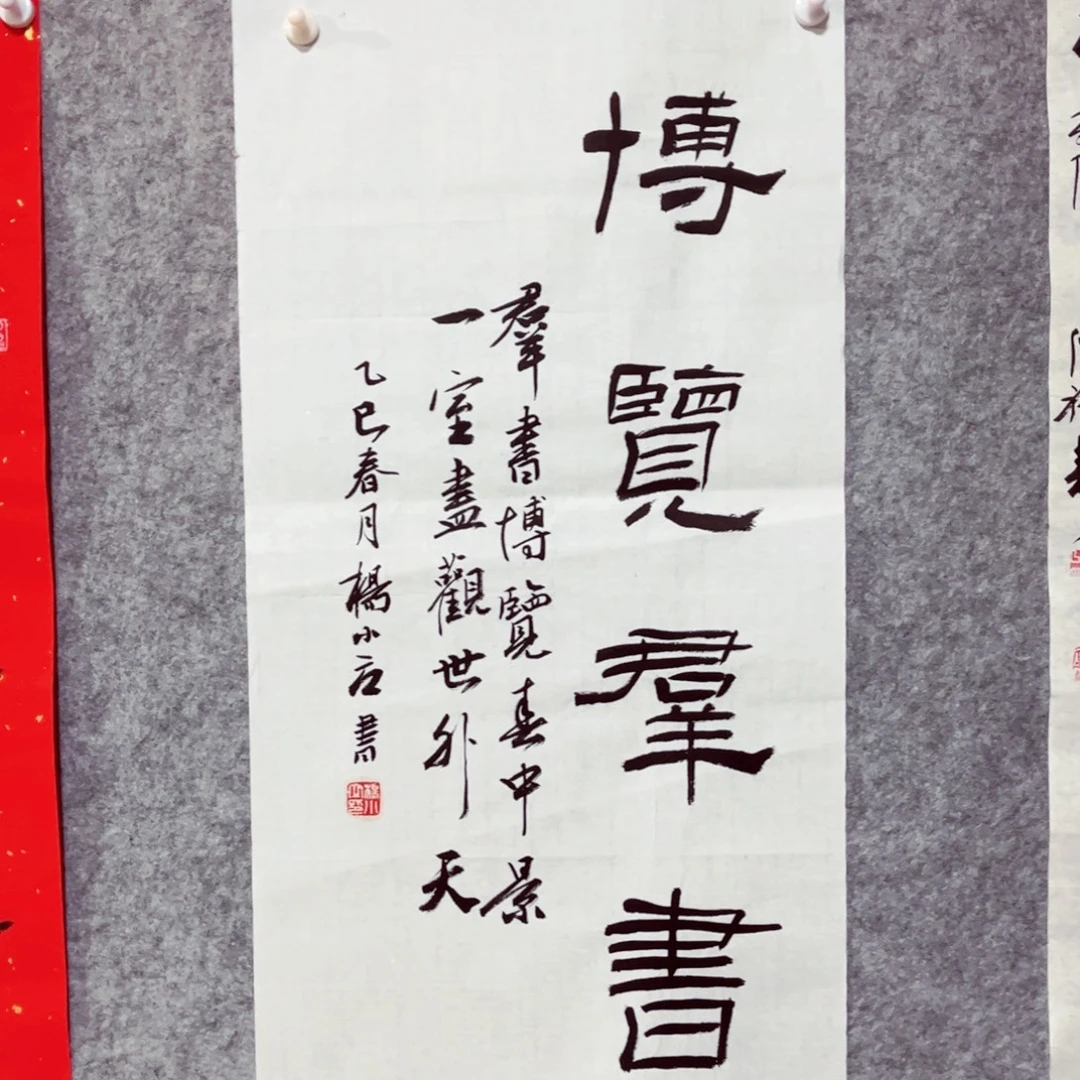 博覽羣書
羣書博覽春中景
一室盡觀世外天
乙巳春月楊小石書